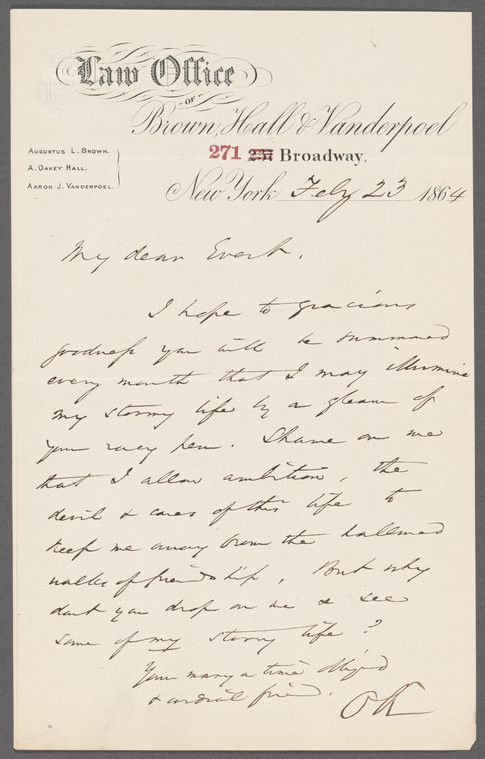 Law Office
OF
Brown, Hall & Vanderpoel
271 237 Broadway.
AUGUSTUS L. BROWN.
A. OAKEY HALL.
AARON J. VANDERPOEL.
New York Feby 23 1864
My dear Evert,
I hope to gracious
goodness you will be summoned
every month that I may illumine
my stormy life by a gleam of
your racy pen. Shame on me
that I allow ambition, the
devil & cares of this life to
keep me away from the hallowed
walks of friendship. But why
dont you drop on me & see
some of my stormy life?
Your many a time obliged
& cordial friend.